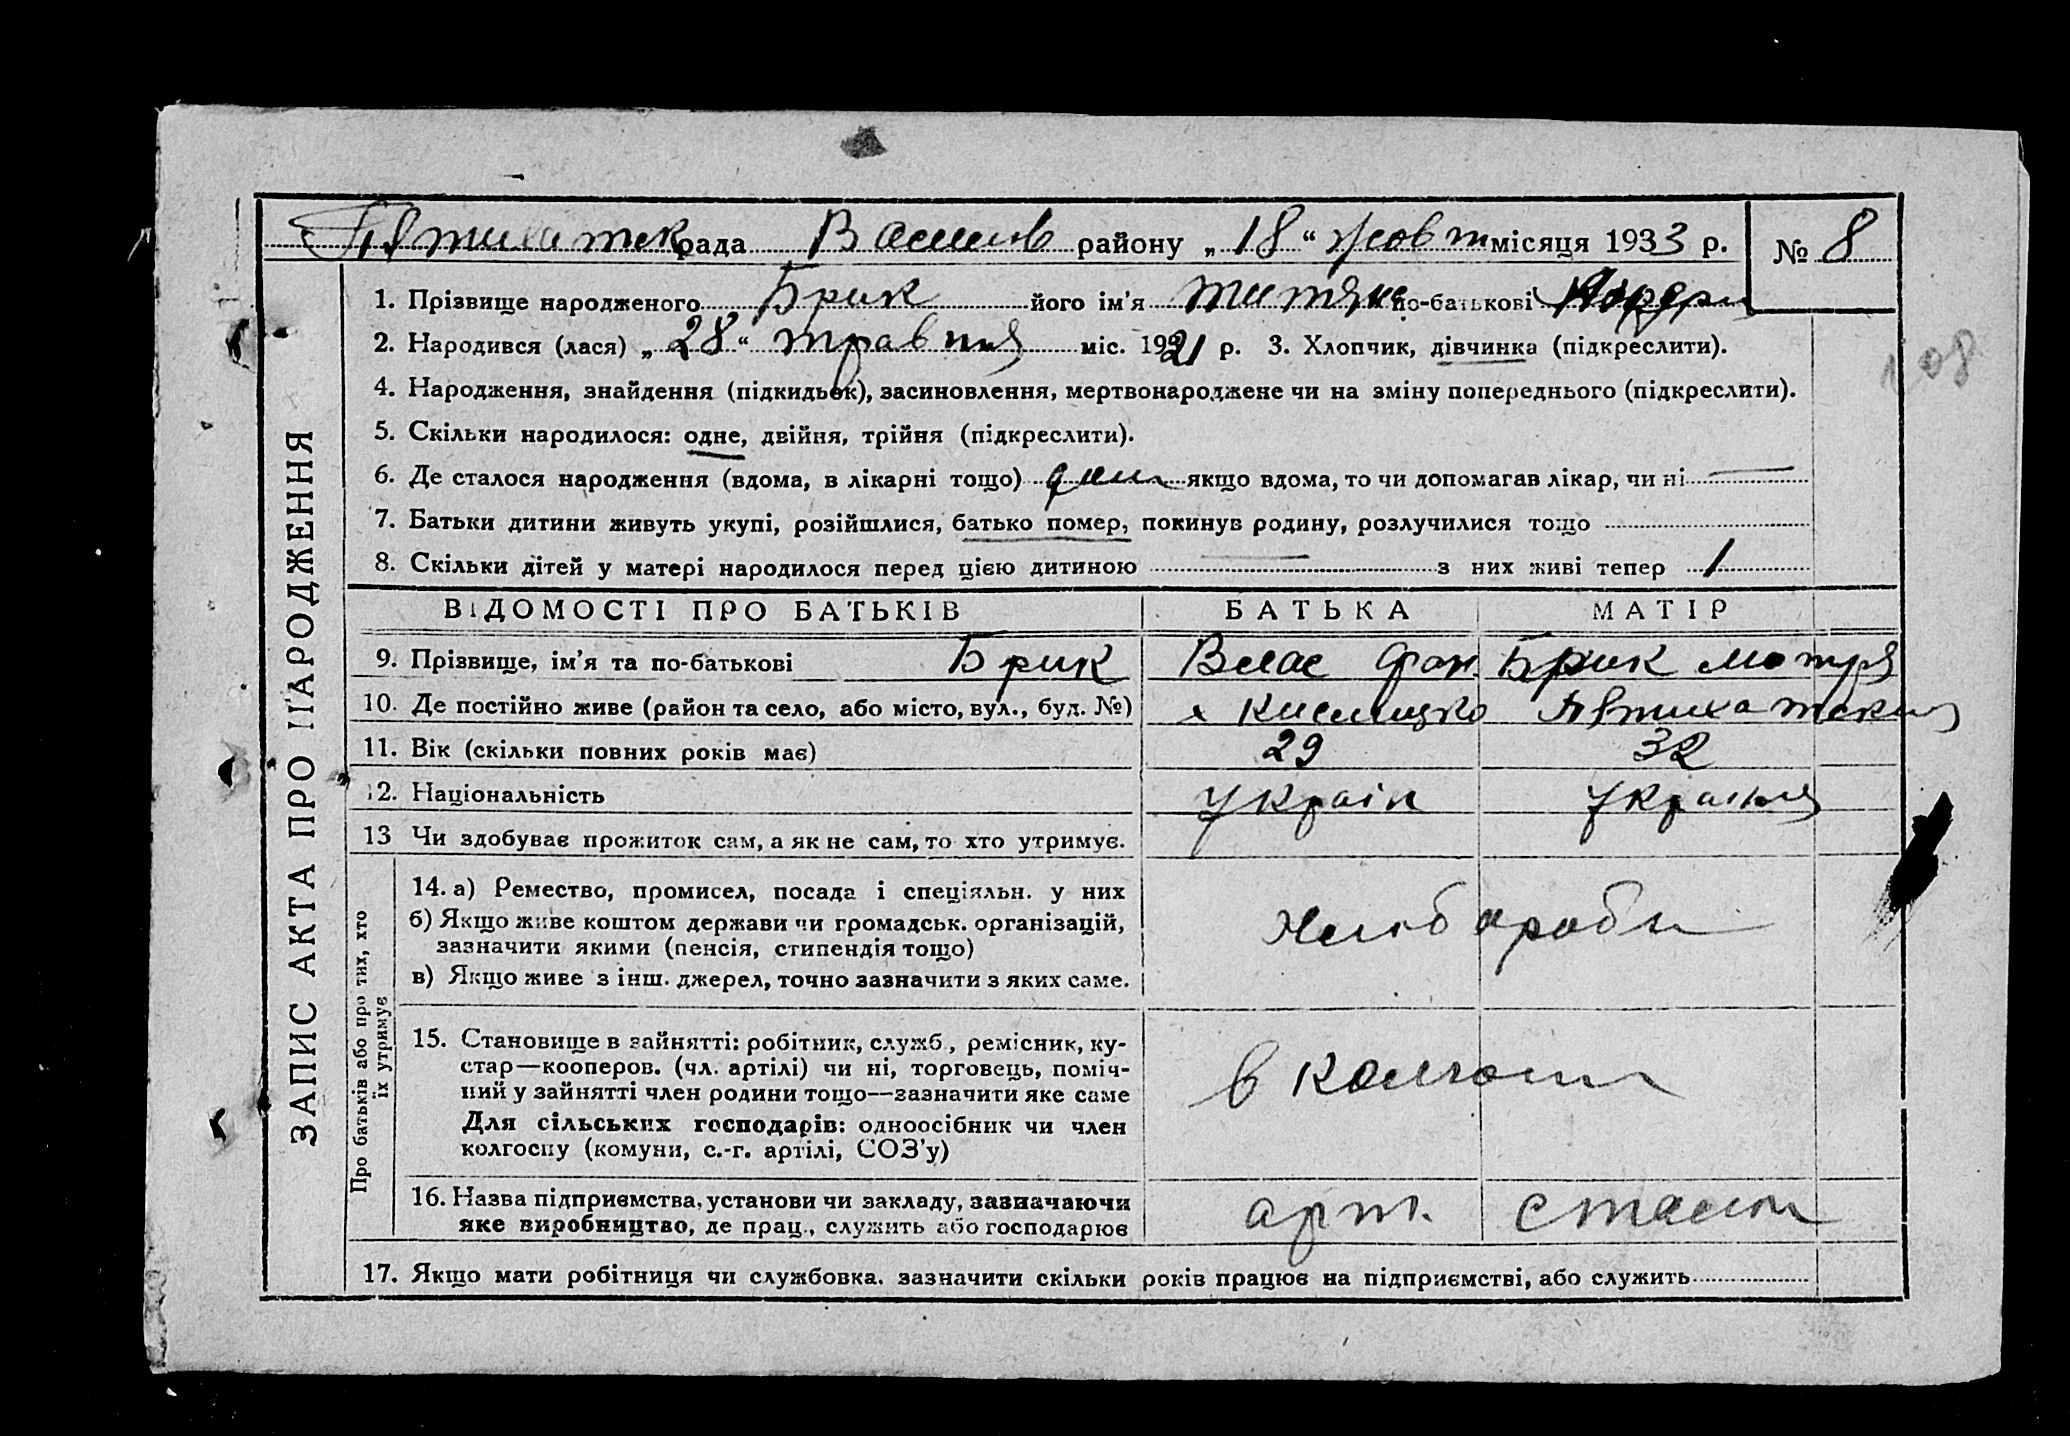 Пятихатск рада Васил району „18“ жовт місяця 1933 р. № 8
1. Прізвище народженого Брик його ім’я Титяна по-батькові
2. Народився (лася) „28“ травня міс. 1921 р. 3. Хлопчик, дівчинка (підкреслити).
108
4. Народження, знайдення (підкидьок), засиновлення, мертвонароджене чи на зміну попереднього (підкреслити).
5. Скільки народилося: одне, двійня, трійня (підкреслити).
6. Де сталося народження (вдома, в лікарні тощо) якщо вдома, то чи допомагав лікар, чи ні —
7. Батьки дитини живуть укупі, розійшлися, батько помер, покинув родину, розлучилися тощо
8. Скільки дітей у матері народилося перед цією дитиною — з них живі тепер 1
ВІДОМОСТІ ПРО БАТЬКІВ БАТЬКА МАТІР
9. Прізвище, ім’я та по-батькові Брик Влас Фан. Брик Мотря
10. Де постійно живе (район та село, або місто, вул., буд. №) х
11. Вік (скільки повних років має) 29 32
12. Національність Україн Українка
13 Чи здобуває прожиток сам, а як не сам, то хто утримує.
14. а) Ремество, промисел, посада і спеціяльн. у них
б) Якщо живе коштом держави чи громадськ. організацій,
зазначити якими (пенсія, стипендія тощо)
в) Якщо живе з інш. джерел, точно зазначити з яких саме.
Хлібороби
15. Становище в зайнятті: робітник, служб., ремісник, ку-
стар—кооперов. (чл. артілі) чи ні, торговець, поміч-
ний у зайнятті член родини тощо—зазначити яке саме
Для сільських господарів: одноосібник чи член
колгоспу (комуни, с.-г. артілі, СОЗ’у)
в колгоспі
16. Назва підприємства, установи чи закладу, зазначаючи
яке виробництво, де прац., служить або господарює
арт. Сталін
17. Якщо мати робітниця чи службовка, зазначити скільки років працює на підприємстві, або служить
ЗАПИС АКТА ПРО НАРОДЖЕННЯ
Про батьків або про тих, хто
їх утримує